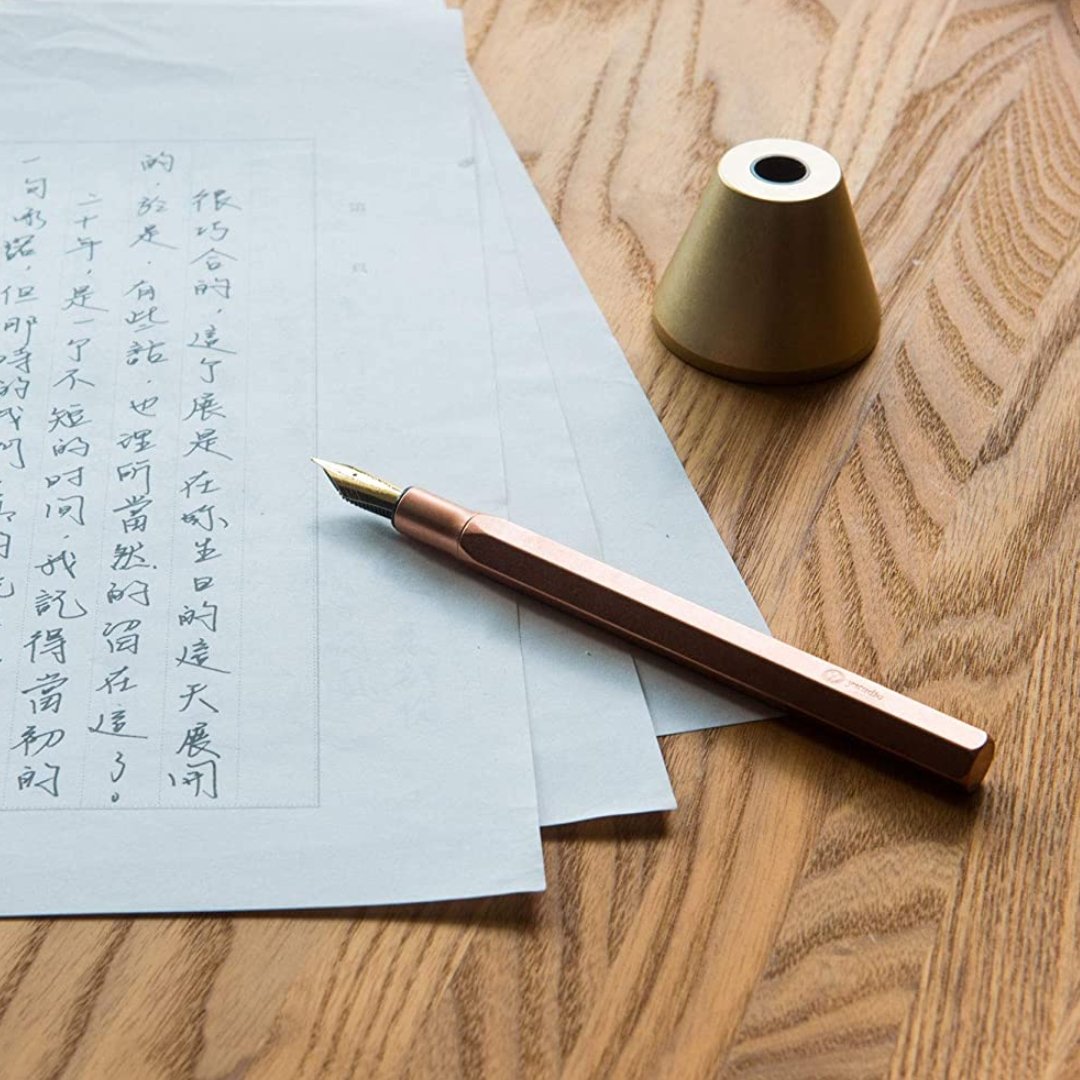 第 頁
很巧合的，這个展是在妳生日的這天展開
的，於是，有些話，也理所當然的留在這了。
二十年，是一个不短的时间，我記得當初的
一句承諾，但那時的我們
ystudio